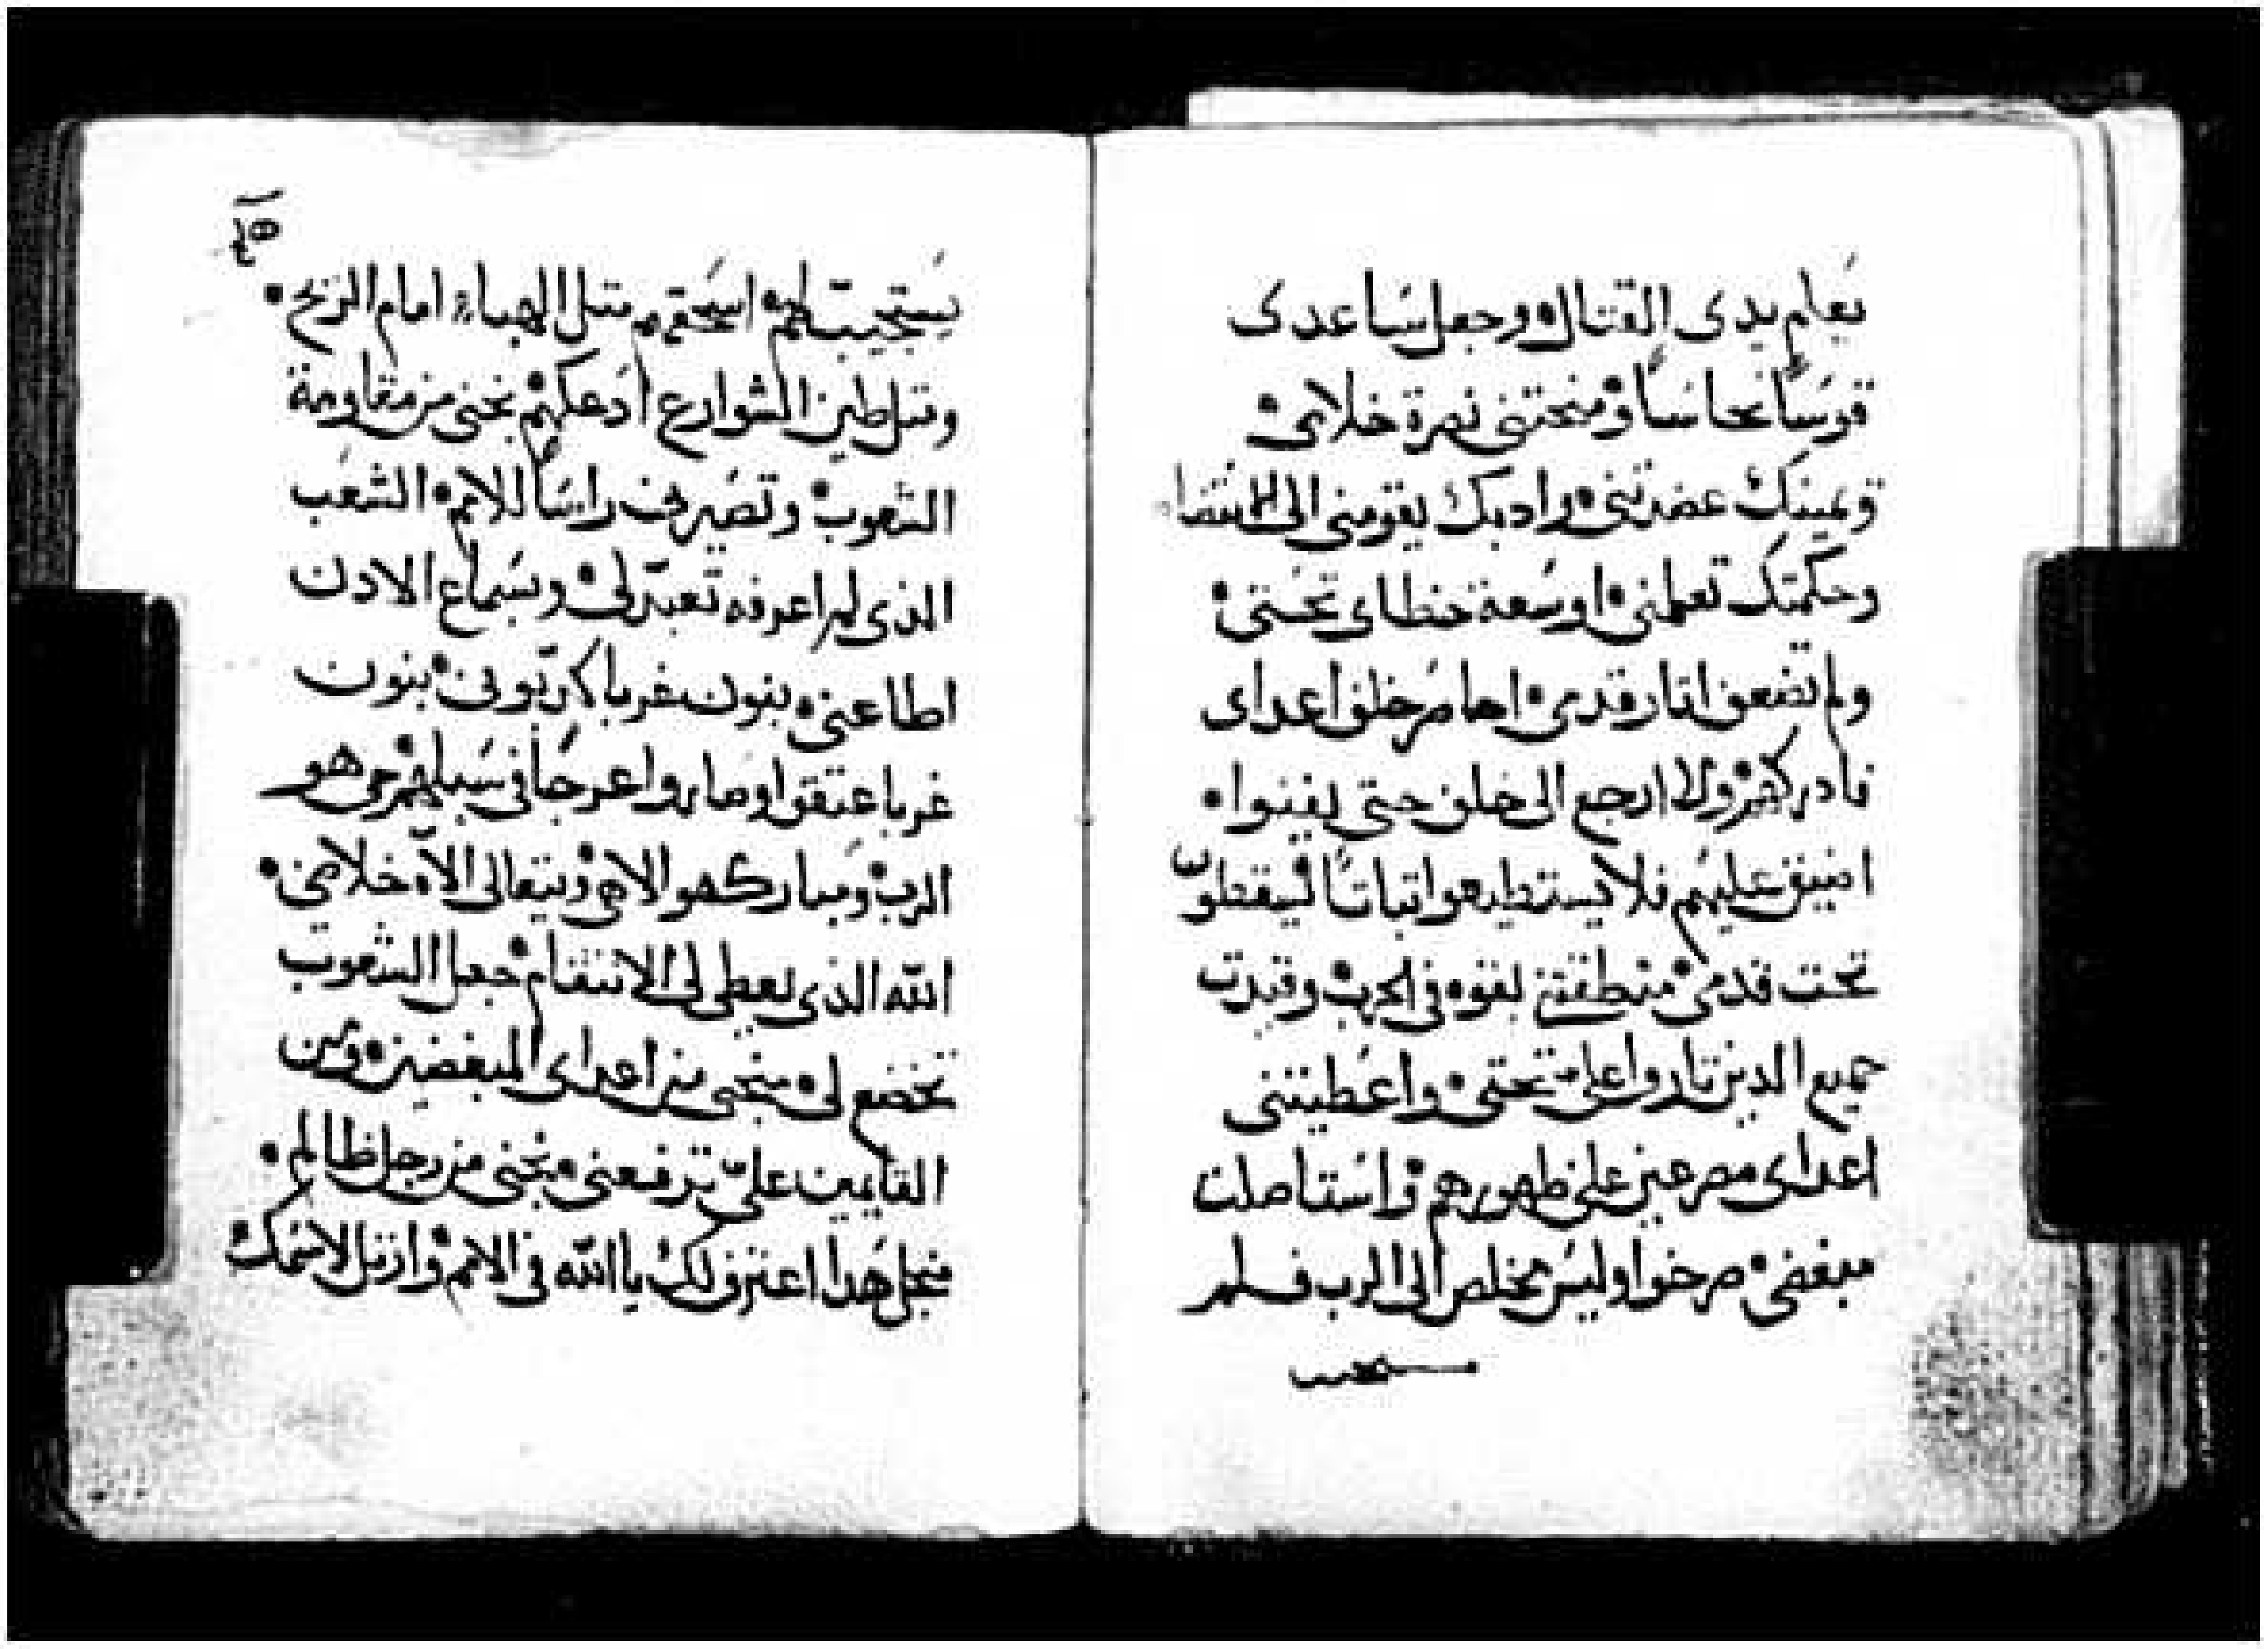 يعلم يدى القتال وجعل ساعدى
قوسًا نحاسًا ومنحتنى نصرة خلاصى
ويمينك عضدتنى وادبك يقومنى الى الانقضا
وحكمتك تعلمنى اوسعة خطاى تحتى
ولم تضعف اتار قدمى اهامر خلف اعداى
فادركهم ولا ارجع الى خلف حتى يفنوا
اضيق عليهم فلا يستطيعوا تباتًا ليسقطوا
تحت قدمى منطقتنى بقوه فى الحرب وقيدت
جميع الدين تاروا على تحتى واعطيتنى
اعداى مصرعين على ظهورهم واستاصلت
مبغضى صرخوا وليس مخلص الى الرب فلم
يستجيب لهم اسحقهم متل الهباء امام الريح
ومتل طين الشوارع ادعكهم نجنى من مقاومة
الشعوب وتصيرنى راسًا للامم الشعب
الذى لم اعرفه تعبد لى وبسماع الادن
اطاعنى بنون غربا كدبونى بنون
غربا عتقوا وصاروا عرجًا فى سبيلهم حى هو
الرب ومبارك هو الاهى ويتعالى الآه خلاصى
الله الذى يعطى لى الانتقام جعل الشعوب
تخضع لى منجى من اعداى المبغضين ومن
القايمين على ترفعنى نجنى من رجل ظالم
منجل هدا اعترف لك يا الله فى الامم وارتل لاسمك